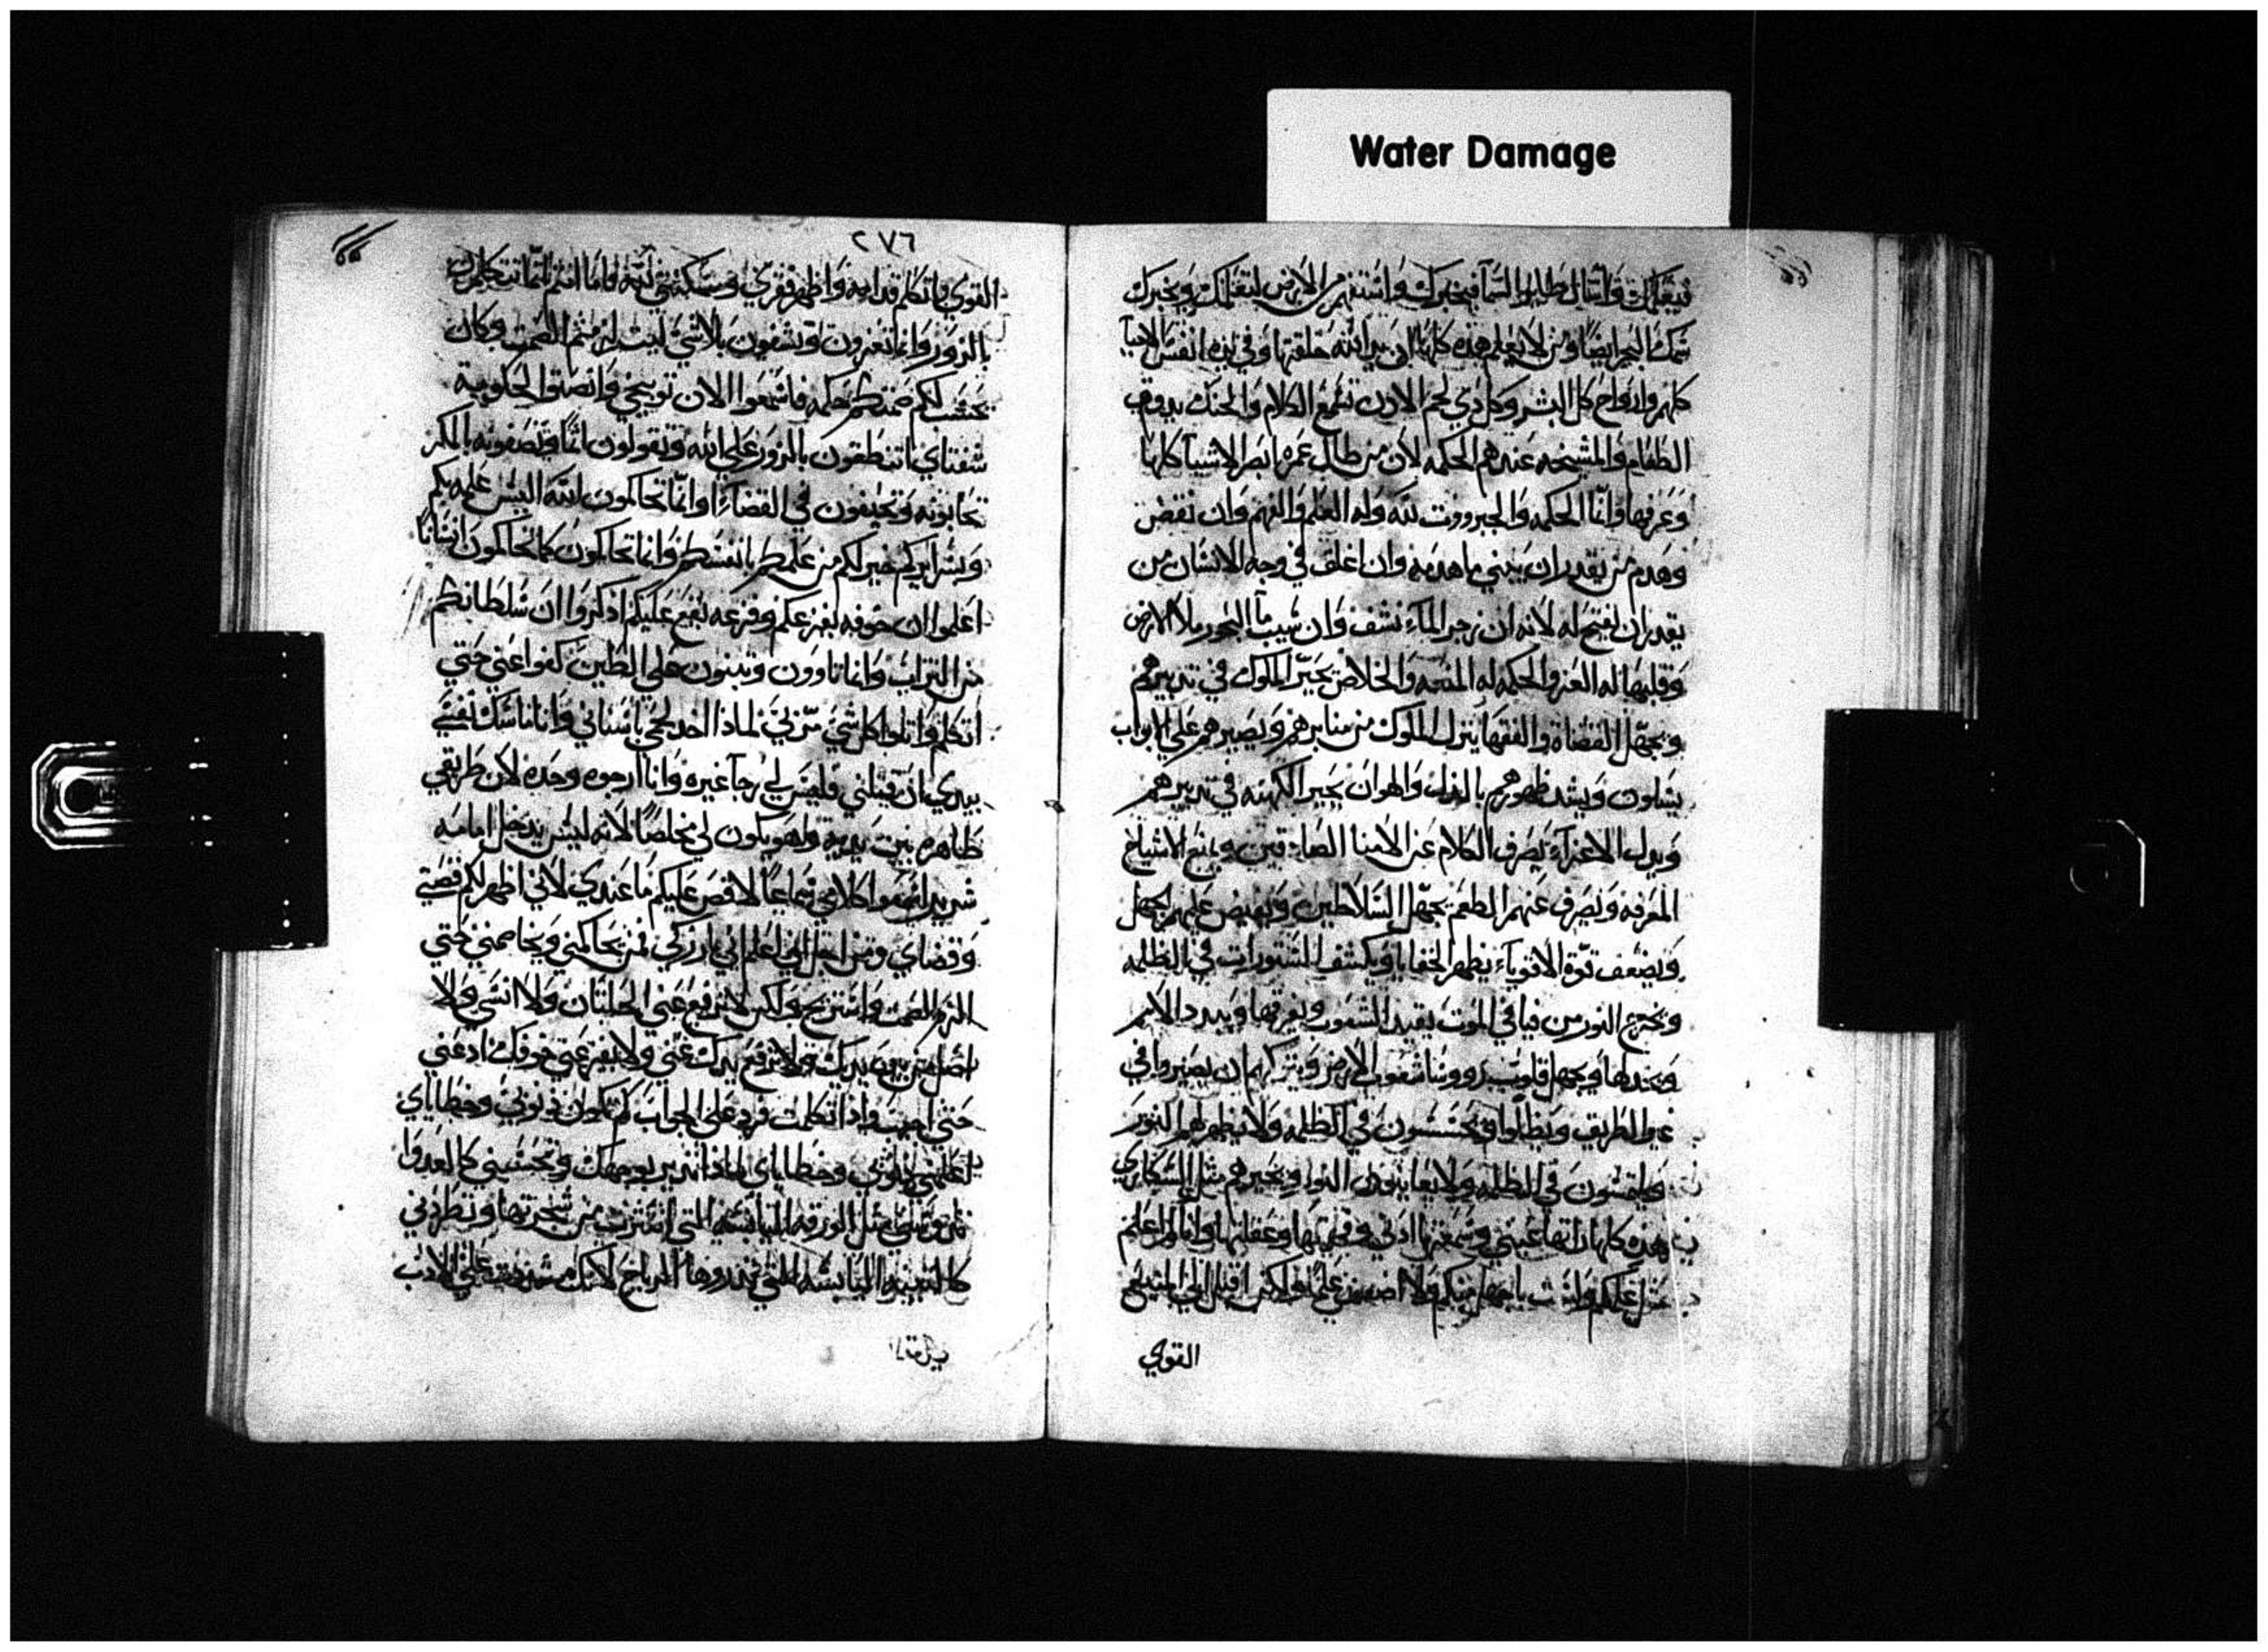 Water Damage
فيعلمك واسال طلير السما فيخبرك واستفهم من الارض لتعلمك ويخبرك
سمك البحر ايضا ومن لا يعلم هذه كلها ان يد الله خلقتها وفي يده انفس الاحيا
كلهم وارواح كل البشر وكل ذي لحم الاذن تسمع الكلام والحنك يذوق
الطعام والمشيخه عندهم الحكمه لان من طال عمره ابصر الاشيا كلها
وعرفها وانما الحكمه والجبرووت لله وله العلم والفهم وان نقض
وهدم من يقدر ان يبني ما هدمه وان اغلق في وجه الانسان من
يقدر ان يفتح له لانه ان زجر الماء نشف وان سيب ما البحور ملا الارض
وقلبها له العز والحكمه له المنعه والخلاص يحير الملوك في تدبيرهم
ويجهل القضاة والفقها ينزل الملوك من منابرهم ويصيرهم على الابواب
يسلون ويشد ظهورهم بالذل والهوان يحير الكهنه في تدبيرهم
ويذل الاعزآء يصرف الكلام عن الامنا الصادقين ويمنع الاشياخ
المعرفه ويصرف عنهم الطعم يجهل السلاطين ويفيض عليهم الجهل
ويضعف قوة الاقوياء يظهر الخفايا ويكشف المستورات في الظلمه
ويخرج النور من فيافي الموت يقيد الشعوب ويفرقها ويبدد الامم
ويجهل قلوب رووسا شعوب الارض ويتركهم ان يصيروا في
غير الطريق ويظلوا يتجسسون في الظلمه ولا يظهر لهم النور
في الظلمه ولا يعاينون النور ويحيرهم مثل السكارى
هذه كلها راتها عيني وسمعتها اذني وفهمتها وعقلتها وانا
علمكم ولست باجهل منكم ولا علما ولكن اقبل الى المنيع
القوي
٢٧٦
القوي واتكلم قدامه واظهر فقري ومسكنتي لله فاما انتم انما تتكلمون
بالزور وانما تعزون وتشفون بلا شي ليت لزمتم الصمت وكان
يحسب لكم صمتكم حكمه فاسمعوا الان توبيخي وانصتوا لحكومة
شفتاي اتنطقون بالزور على الله وتقولون اثما وتنصفونه بالمكر
تحابونه وتحيفون في القضاء او انما تحاكمون الله اليس علمه بكم
وبسرايركم خير لكم من علمكم بانفسكم وانما تحاكمون كما تحاكمون انسانا
اعلموا ان خوفه يفزعكم وفزعه يقع عليكم اذكروا ان سلطانكم
من التراب وانما تاوون وتبنون على الطين كفوا عني حتي
اتكلم واتلوا كل شي لماذا اخد لحمي باسناني وانا ماسك نفسي
بيدي ان قتلني فليس لي رجآ غيره وانا ارجوه وحده لان طريقي
ظاهره بين يديه وهو يكون لي مخلصا لانه ليس يدخل امامه
شرير اسمعوا كلامي سماعا لاقص عليكم ما عندي لاني اظهر لكم قصتي
وقضاي ومن اجل اني اعلم اني بار زكي فمن يحاكمني ويخاصمني حتي
الزم الصمت واستريح ولكن لا ترفع عني الخلتان ولا انسي ولا
اضل من بين يديك ولا ترفع يدك عني ولا يفزعني خوفك ادعني
حتي اجيب واذا تكلمت فرد علي الجواب كم تكون ذنوبي وخطاياي
اعلمني ذنوبي وخطاياي لماذا تدير بوجهك وتحسبني كالعدوا
مثل الورقه اليابسه التي انتثرت من شجرتها وتطردني
اليابسه التي تذروها الرياح لانك